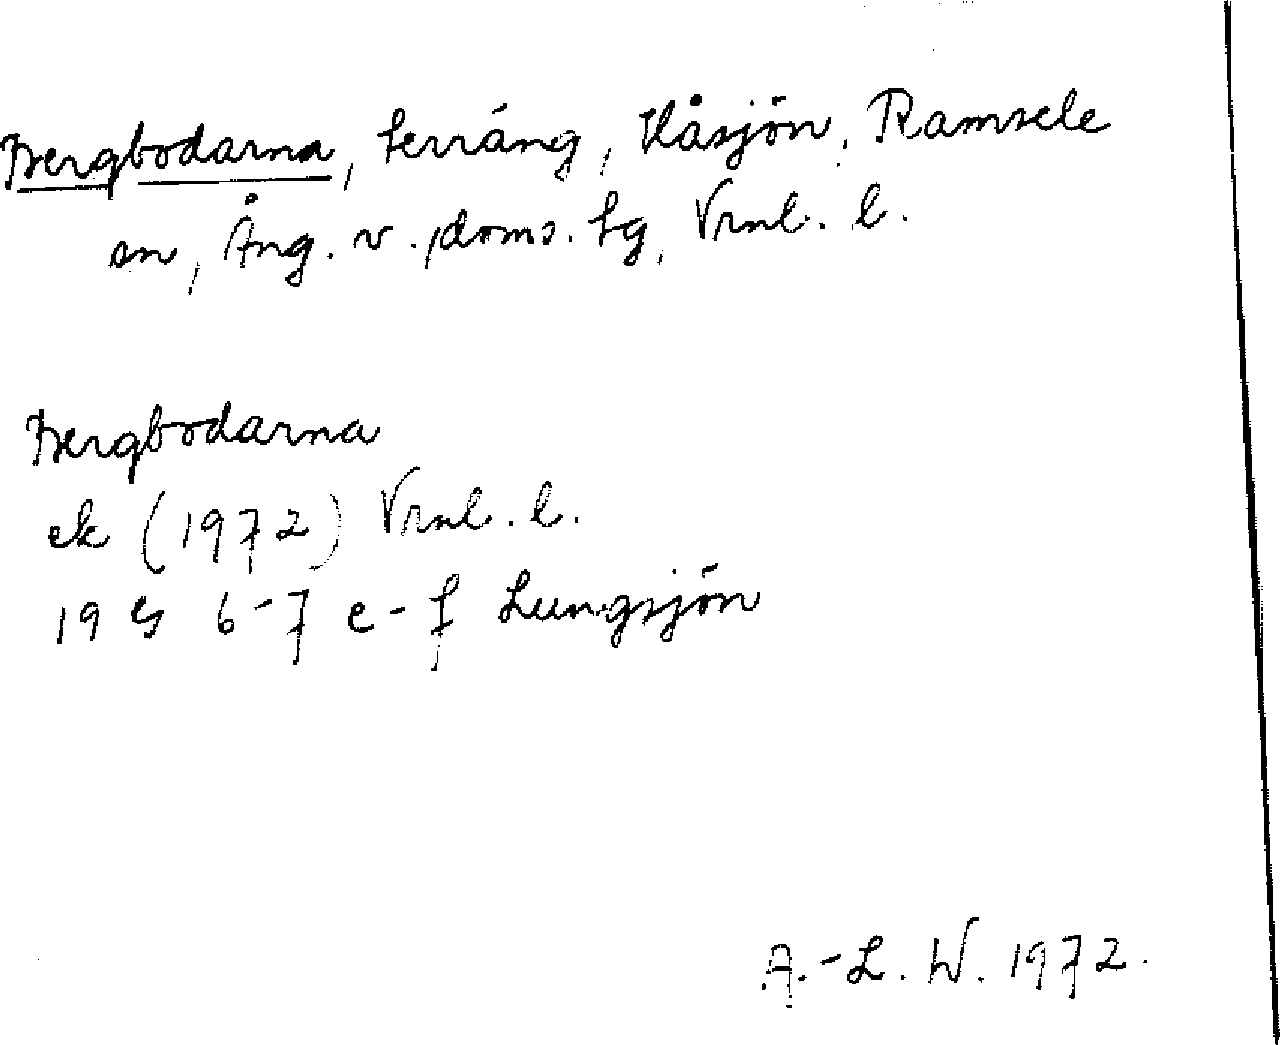 Bergbodarna, terräng, Håsjön, Ramsele
sn, Ång. v. doms. tg, Vrnl. l.
Bergbodarna
ek (1972) Vrnl. l.
19 G 6-7 e-f Lungsjön
A.-L. W. 1972.